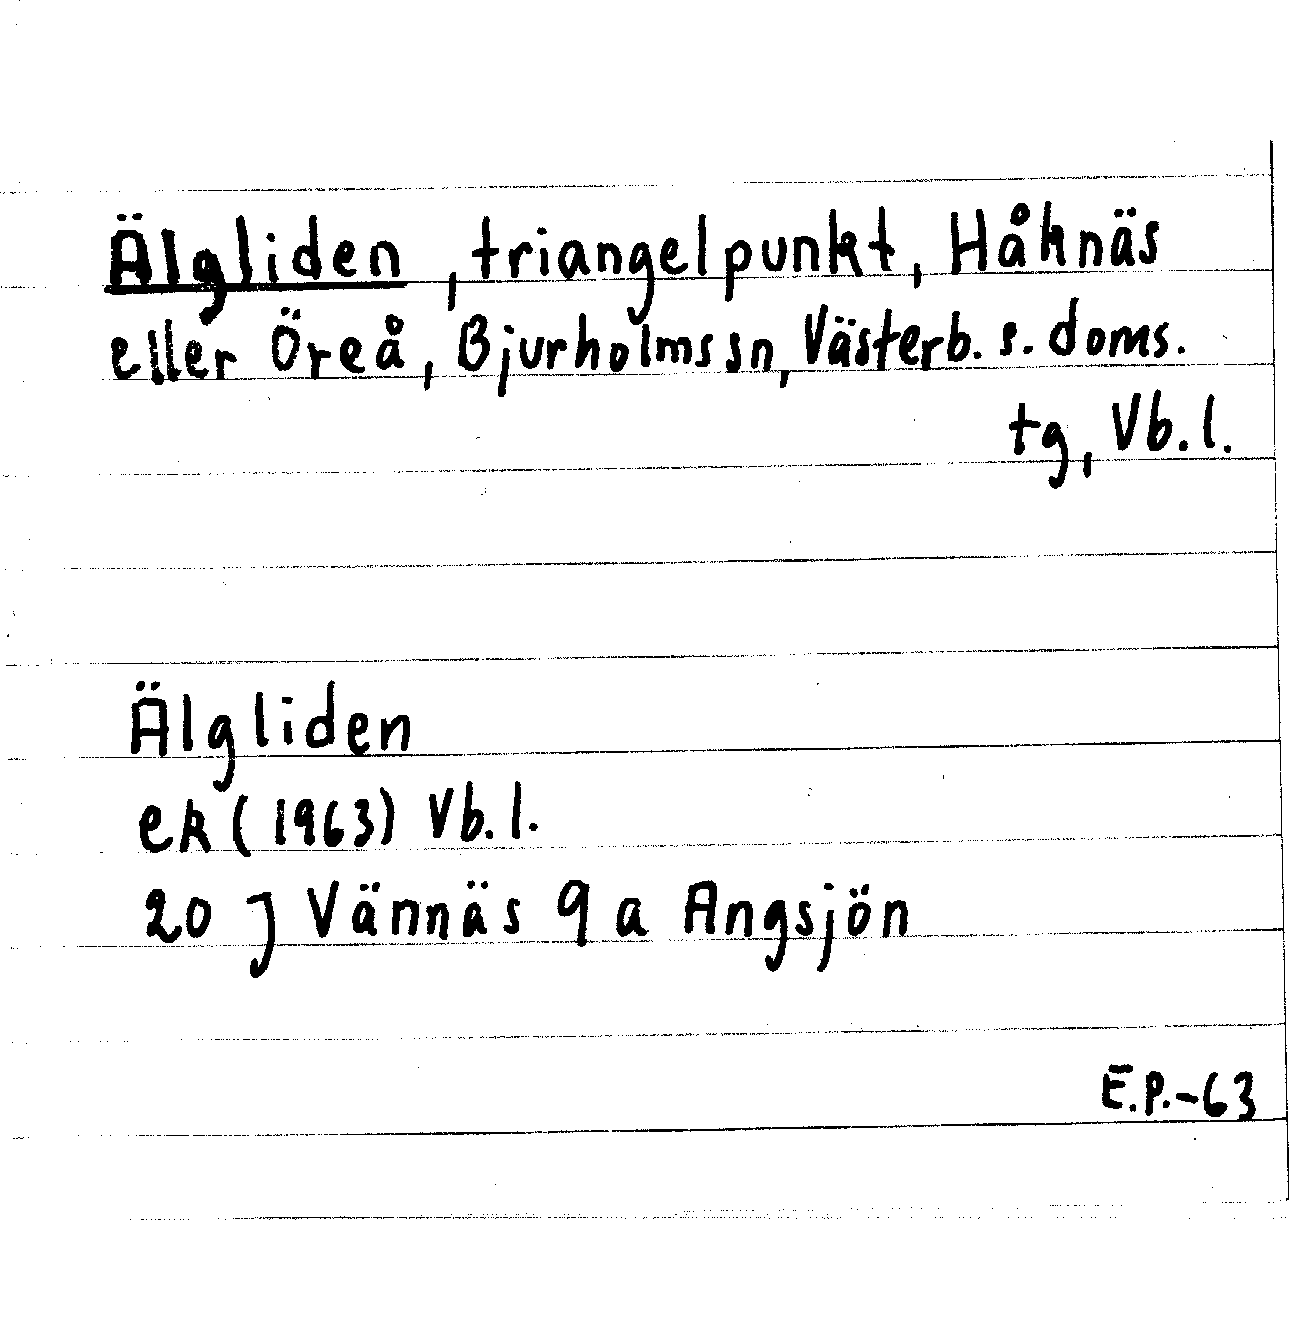 Älgliden, triangelpunkt, Håknäs
eller Öreå, Bjurholmssn, Västerb. s. doms.
tg, Vb. l.
Älgliden
ek (1963) Vb. l.
20 J Vännäs 9 a Angsjön
E.P.-63